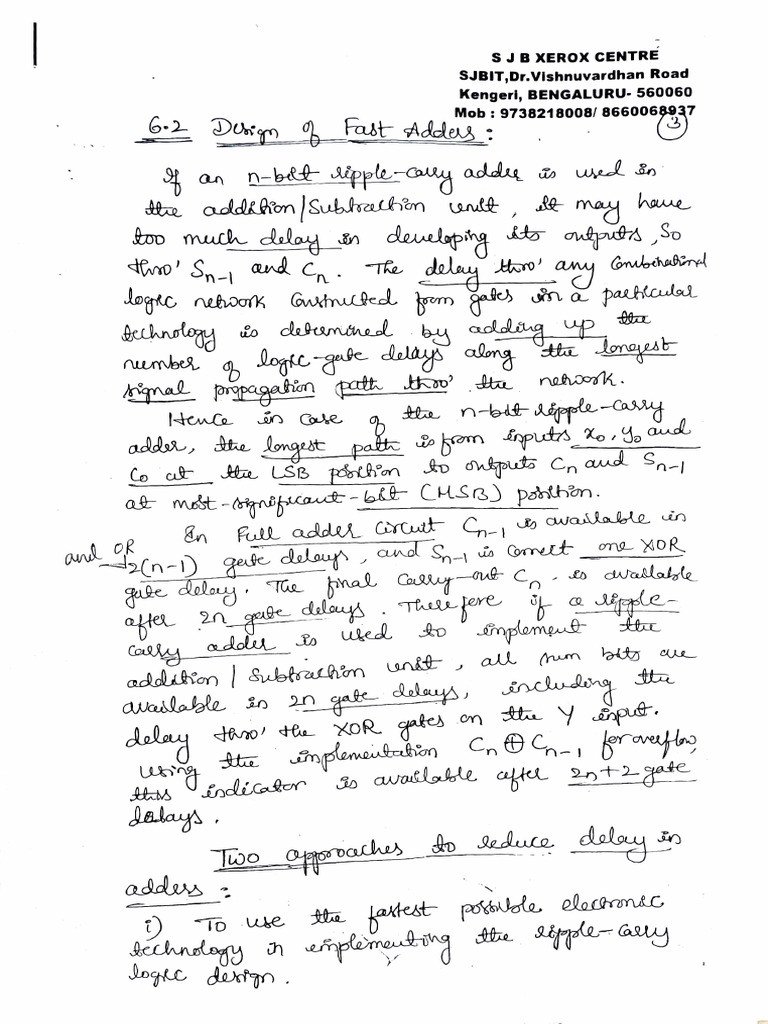 S J B XEROX CENTRE
SJBIT,Dr.Vishnuvardhan Road
Kengeri, BENGALURU- 560060
Mob : 9738218008/ 8660068937
3
6.2 Design of Fast Adders :
If an n-bit ripple-carry adder is used in
the addition/Subtraction unit, it may have
too much delay in developing its outputs, So
thro' Sn-1 and Cn. The delay thro' any Combinational
logic network Constructed from gates in a particular
technology is determined by adding up the
number of logic-gate delays along the longest
signal propagation path thro' the network.
Hence in case of the n-bit ripple-carry
adder, the longest path is from inputs x0, y0 and
C0 at the LSB position to outputs Cn and Sn-1
at most-significant-bit (MSB) position.
In Full adder circuit Cn-1 is available in
and OR
2(n-1) gate delays, and Sn-1 is correct one XOR
gate delay. The final carry-out Cn is available
after 2n gate delays. Therefore if a ripple-
carry adder is used to implement the
addition / Subtraction unit, all sum bits are
available in 2n gate delays, including the
delay thro' the XOR gates on the Y input.
using the implementation Cn ⊕ Cn-1 for overflow,
this indicator is available after 2n+2 gate
delays.
Two approaches to reduce delay in
adders :
i) To use the fastest possible electronic
technology in implementing the ripple-carry
logic design.